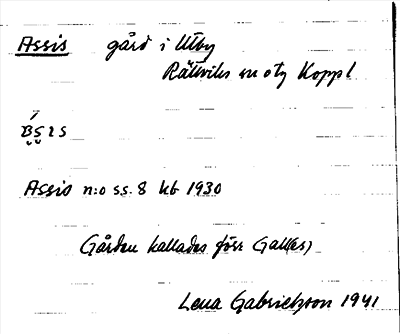 Assis gård i Utby
Rättviks sn o tg Koppl
Assis n:o ss. 8 kb 1930
Gården kallades förr Galles)
Lena Gabrielsson 1941